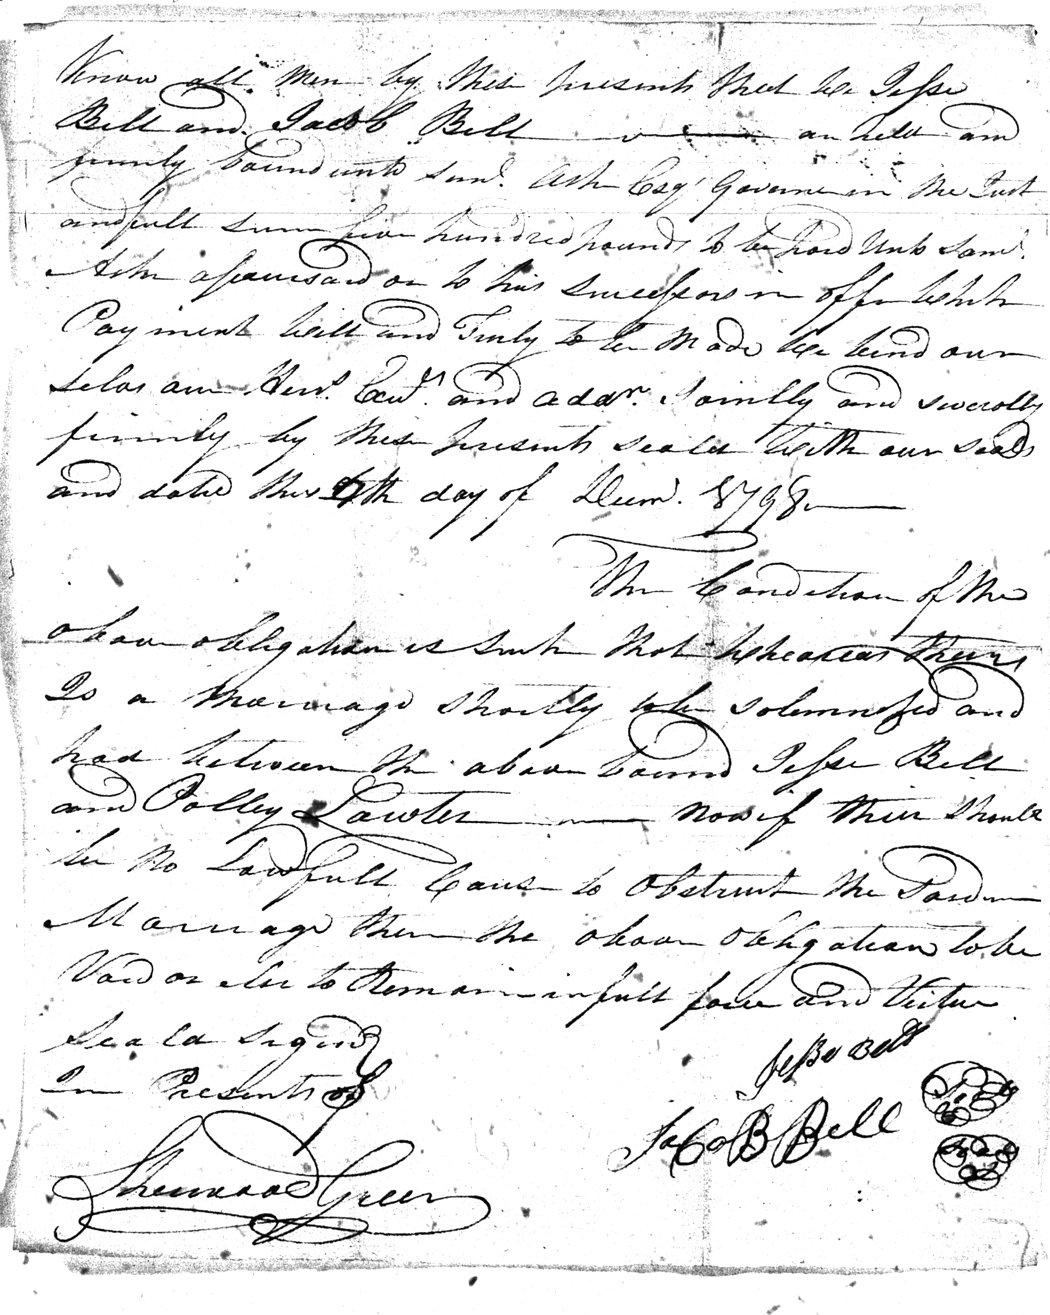 Know all men by these presents that we Jesse
Bell and Jacob Bell are held and
firmly bound unto Saml. Ashe Esqr Governer in the Just
and full sum five hundred pounds to be paid Unto Saml.
Ashe aforesaid or to his successors in office which
Payment Well and Truly to be Made We bind our
selves our Heirs. Exrs. and addmr. Jointly and severally
firmly by these presents seald With our seals
and dated this 4th day of Decmr. 1798
The Condition of the
above obligation is such that whereas there
Is a Marriage shortly to be solemnised and
had between the above bound Jesse Bell
and Polley Lawter now if thier should
be No Lawfull Cause to Obstruct the said
Marriage then the above obligation to be
Void or else to Remain in full force and Virtue
Seald signd
In Presents of
Jesse Bell
Jacob Bell
Seal
Seal
Sherwood Green